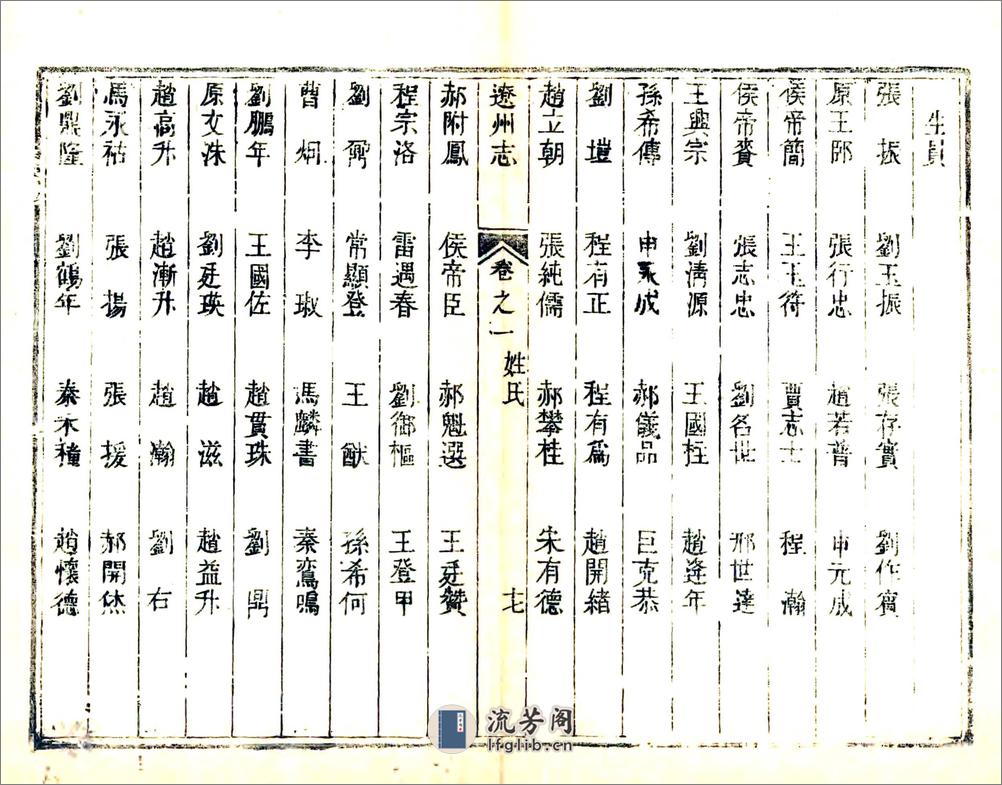 生員
張振　劉玉振　張存實　劉作賓
原王郎　張行忠　趙若普　申元成
侯帝簡　王玉符　賈志士　程瀚
侯帝賚　張志忠　劉名世　邢世達
王興宗　劉淸源　王國柱　趙逢年
孫希傳　申天成　郝儀品　巨克恭
劉塏　程有正　程有爲　趙開緒
趙立朝　張純儒　郝攀桂　宋有德
遼州志　卷之一　姓氏　十七
郝附鳳　侯帝臣　郝魁選　王廷贊
程宗洛　雷遇春　劉御樞　王登甲
劉　常顯登　王猷　孫希何
曹烱　李璬　馮麟書　秦鸞鳴
劉鵬年　王國佐　趙貫珠　劉鼎
原文洙　劉廷瑛　趙滋　趙益升
趙高升　趙漸升　趙瀚　劉右
馮永祜　張揚　張援　郝開烋
劉鼎隆　劉鶴年　秦禾種　趙懷德
流芳阁
lfglib.cn